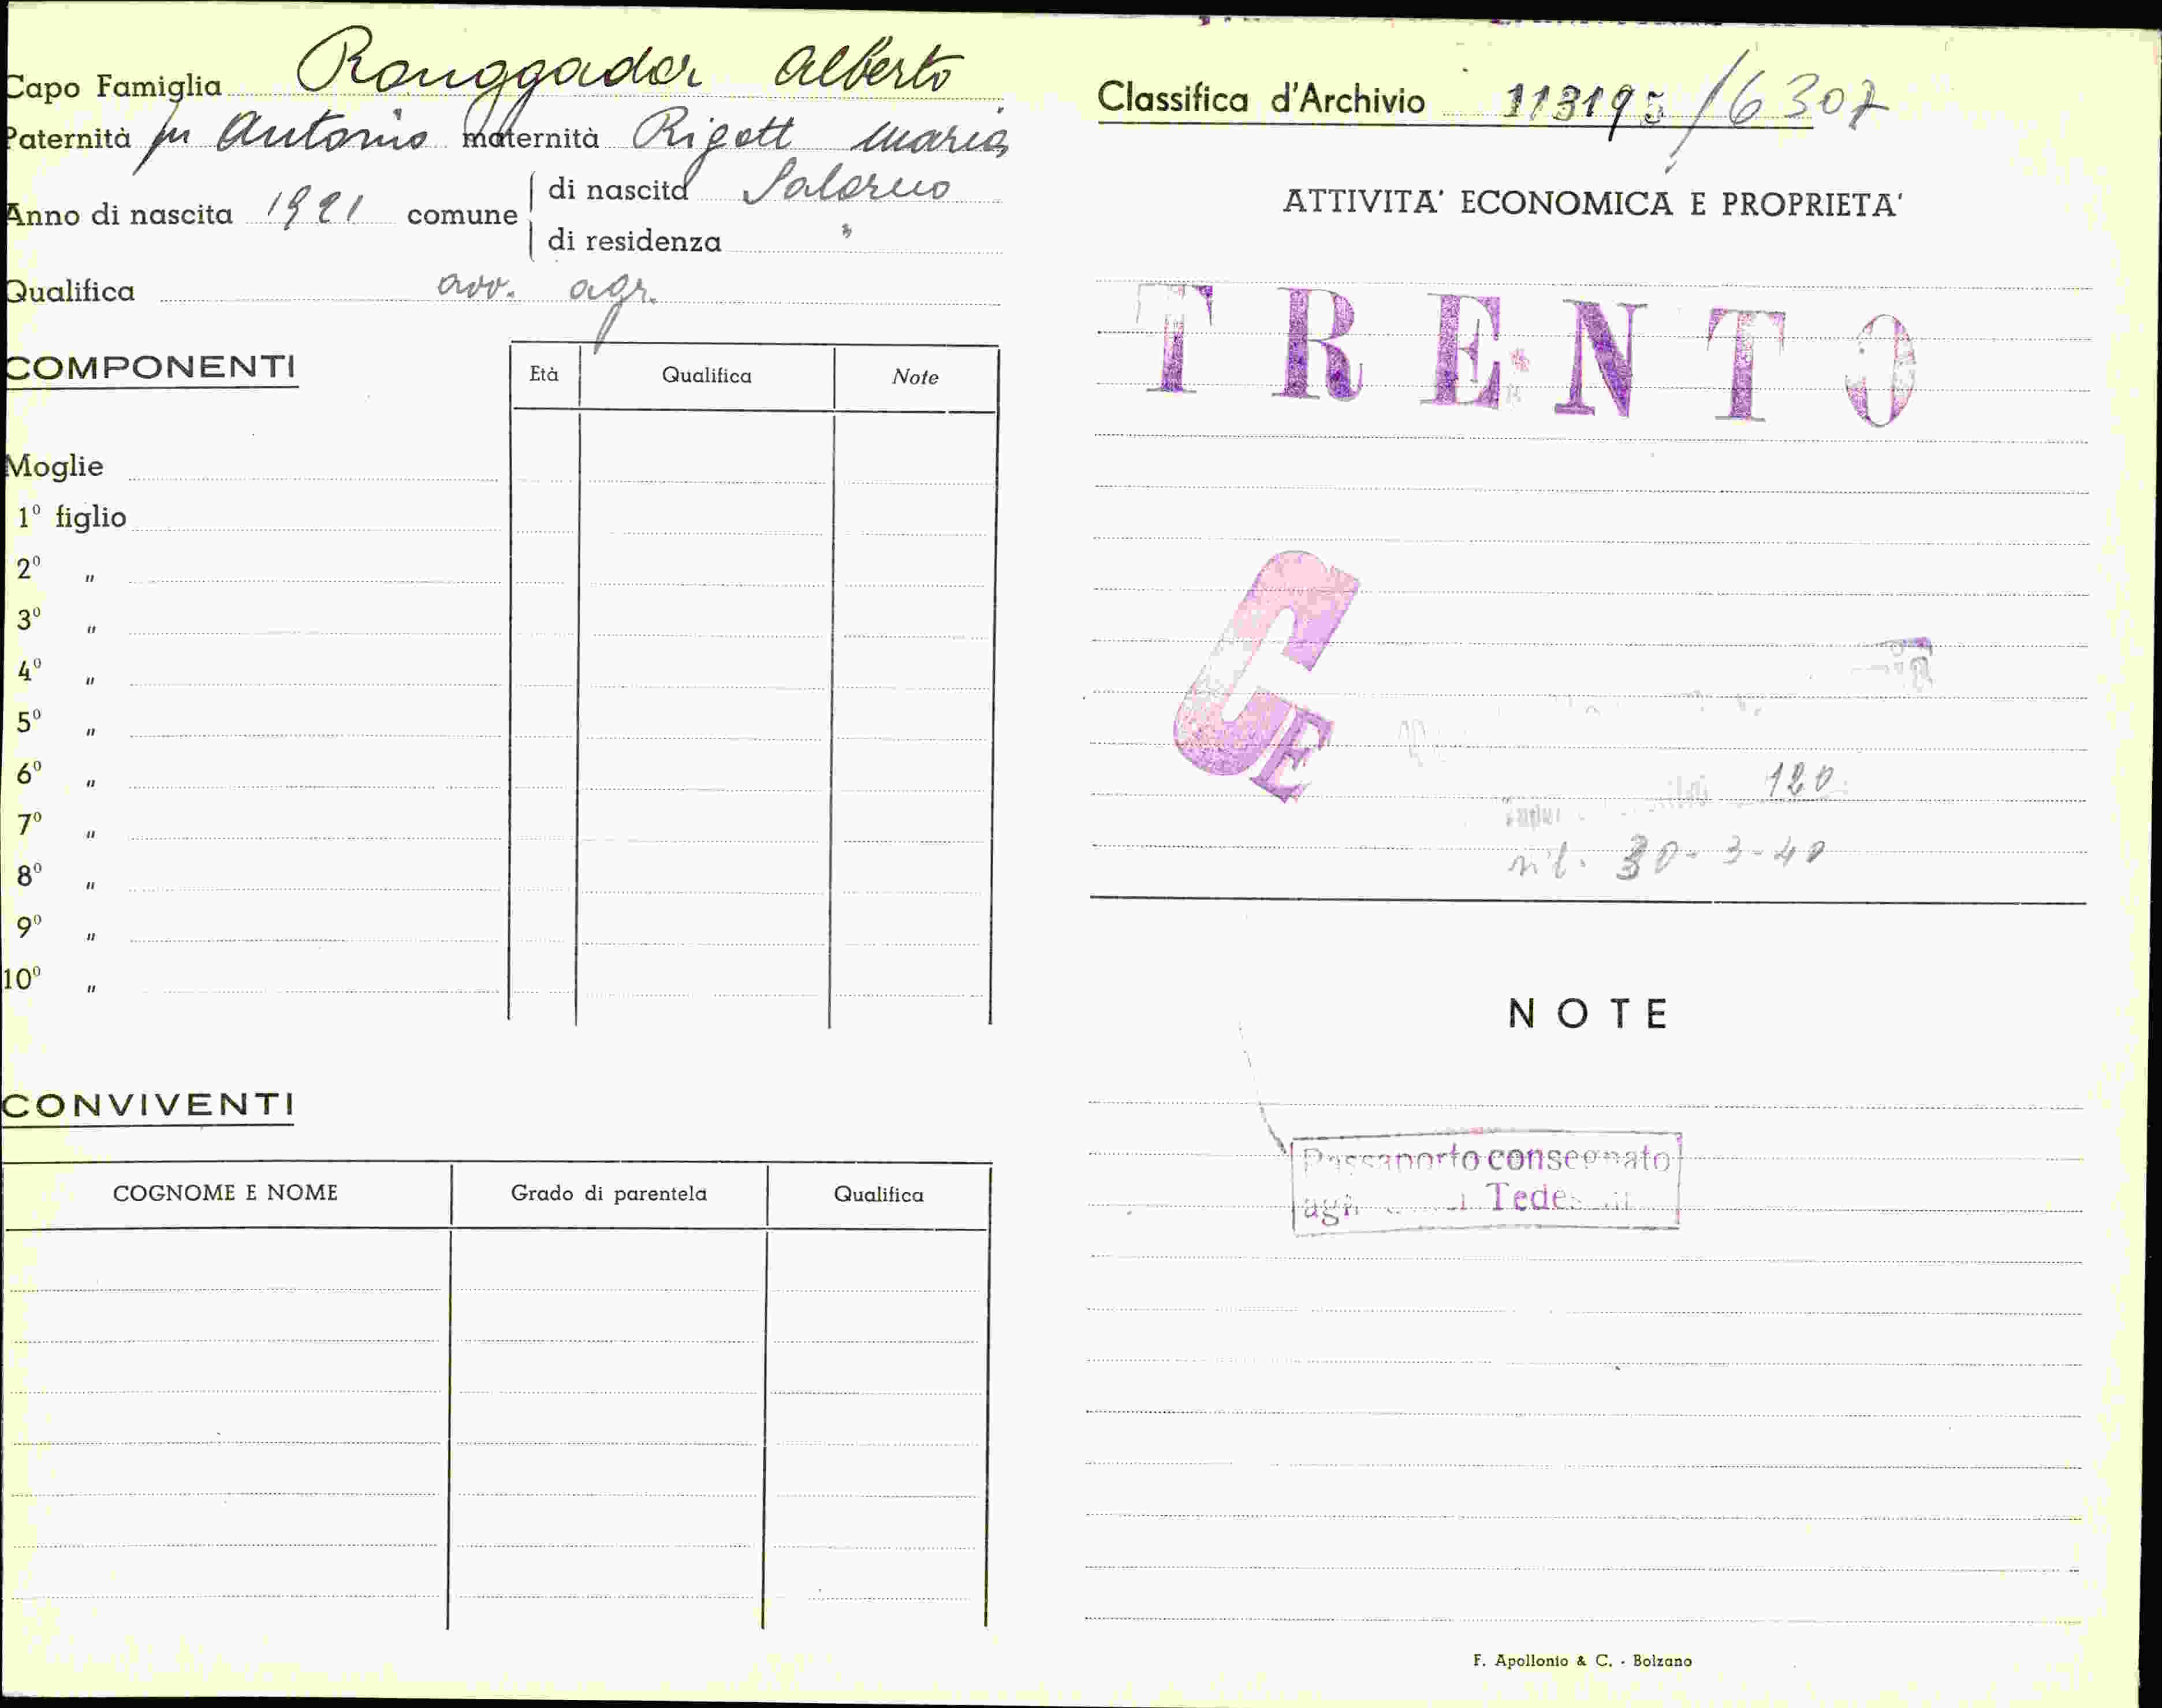 Capo Famiglia Ronggador Alberto
Paternità fu Antonio maternità Rigott Maria
Anno di nascita 1921 comune
di nascita Salorno
di residenza "
Qualifica avv. agr.
COMPONENTI
Età Qualifica Note
Moglie
1º figlio
2º "
3º "
4º "
5º "
6º "
7º "
8º "
9º "
10º "
CONVIVENTI
COGNOME E NOME Grado di parentela Qualifica
Classifica d'Archivio 113195/6307
ATTIVITA' ECONOMICA E PROPRIETA'
TRENTO
CE
120
30-3-40
NOTE
Passaporto consegnato
Tede
F. Apollonio & C. - Bolzano